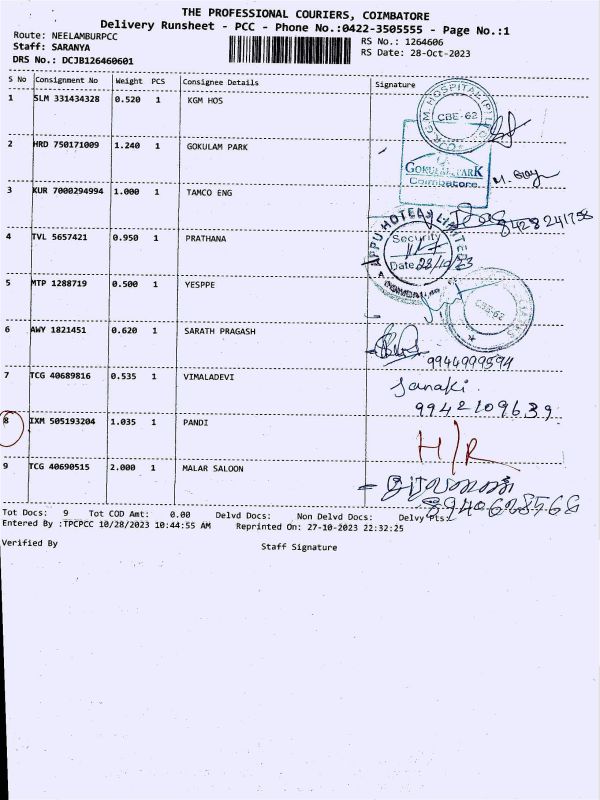 THE PROFESSIONAL COURIERS, COIMBATORE
Delivery Runsheet - PCC - Phone No.:0422-3505555 - Page No.:1
Route: NEELAMBURPCC
Staff: SARANYA
DRS No.: DCJB126460601
RS No.: 1264606
RS Date: 28-Oct-2023
S No Consignment No Weight PCS Consignee Details Signature
1 SLM 331434328 0.520 1 KGM HOS
CBE-62
2 HRD 750171009 1.240 1 GOKULAM PARK
GOKULAM PARK
Coimbatore
3 KUR 7000294994 1.000 1 TAMCO ENG
8428241758
4 TVL 5657421 0.950 1 PRATHANA
APPU HOTELS LIMITED
Security
Date 28/10/23
5 MTP 1288719 0.500 1 YESPPE
CBE-62
6 AWY 1821451 0.620 1 SARATH PRAGASH
9944999594
7 TCG 40689816 0.535 1 VIMALADEVI
Janaki
9942109639
8 IXM 505193204 1.035 1 PANDI
H/R
9 TCG 40690515 2.000 1 MALAR SALOON
8940628568
Tot Docs: 9 Tot COD Amt: 0.00 Delvd Docs: Non Delvd Docs: Delvy Pts:
Entered By :TPCPCC 10/28/2023 10:44:55 AM Reprinted On: 27-10-2023 22:32:25
Verified By
Staff Signature